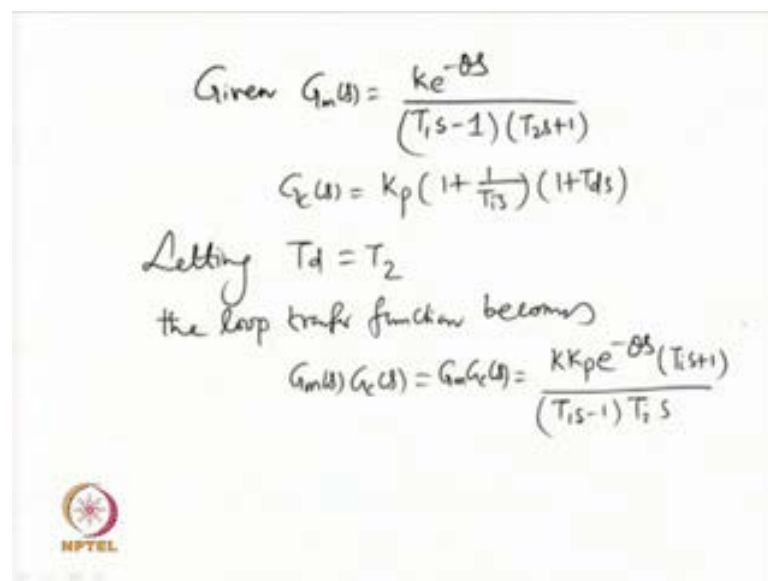 Given Gm(s) = ke^-θs / (T1s-1)(T2s+1)
Gc(s) = Kp(1+ 1/Tis)(1+Tds)
Letting Td = T2
the loop transfr function becomes
Gm(s)Gc(s) = GmGc(s) = KKpe^-θs(Tis+1) / (T1s-1)Ti s
NPTEL